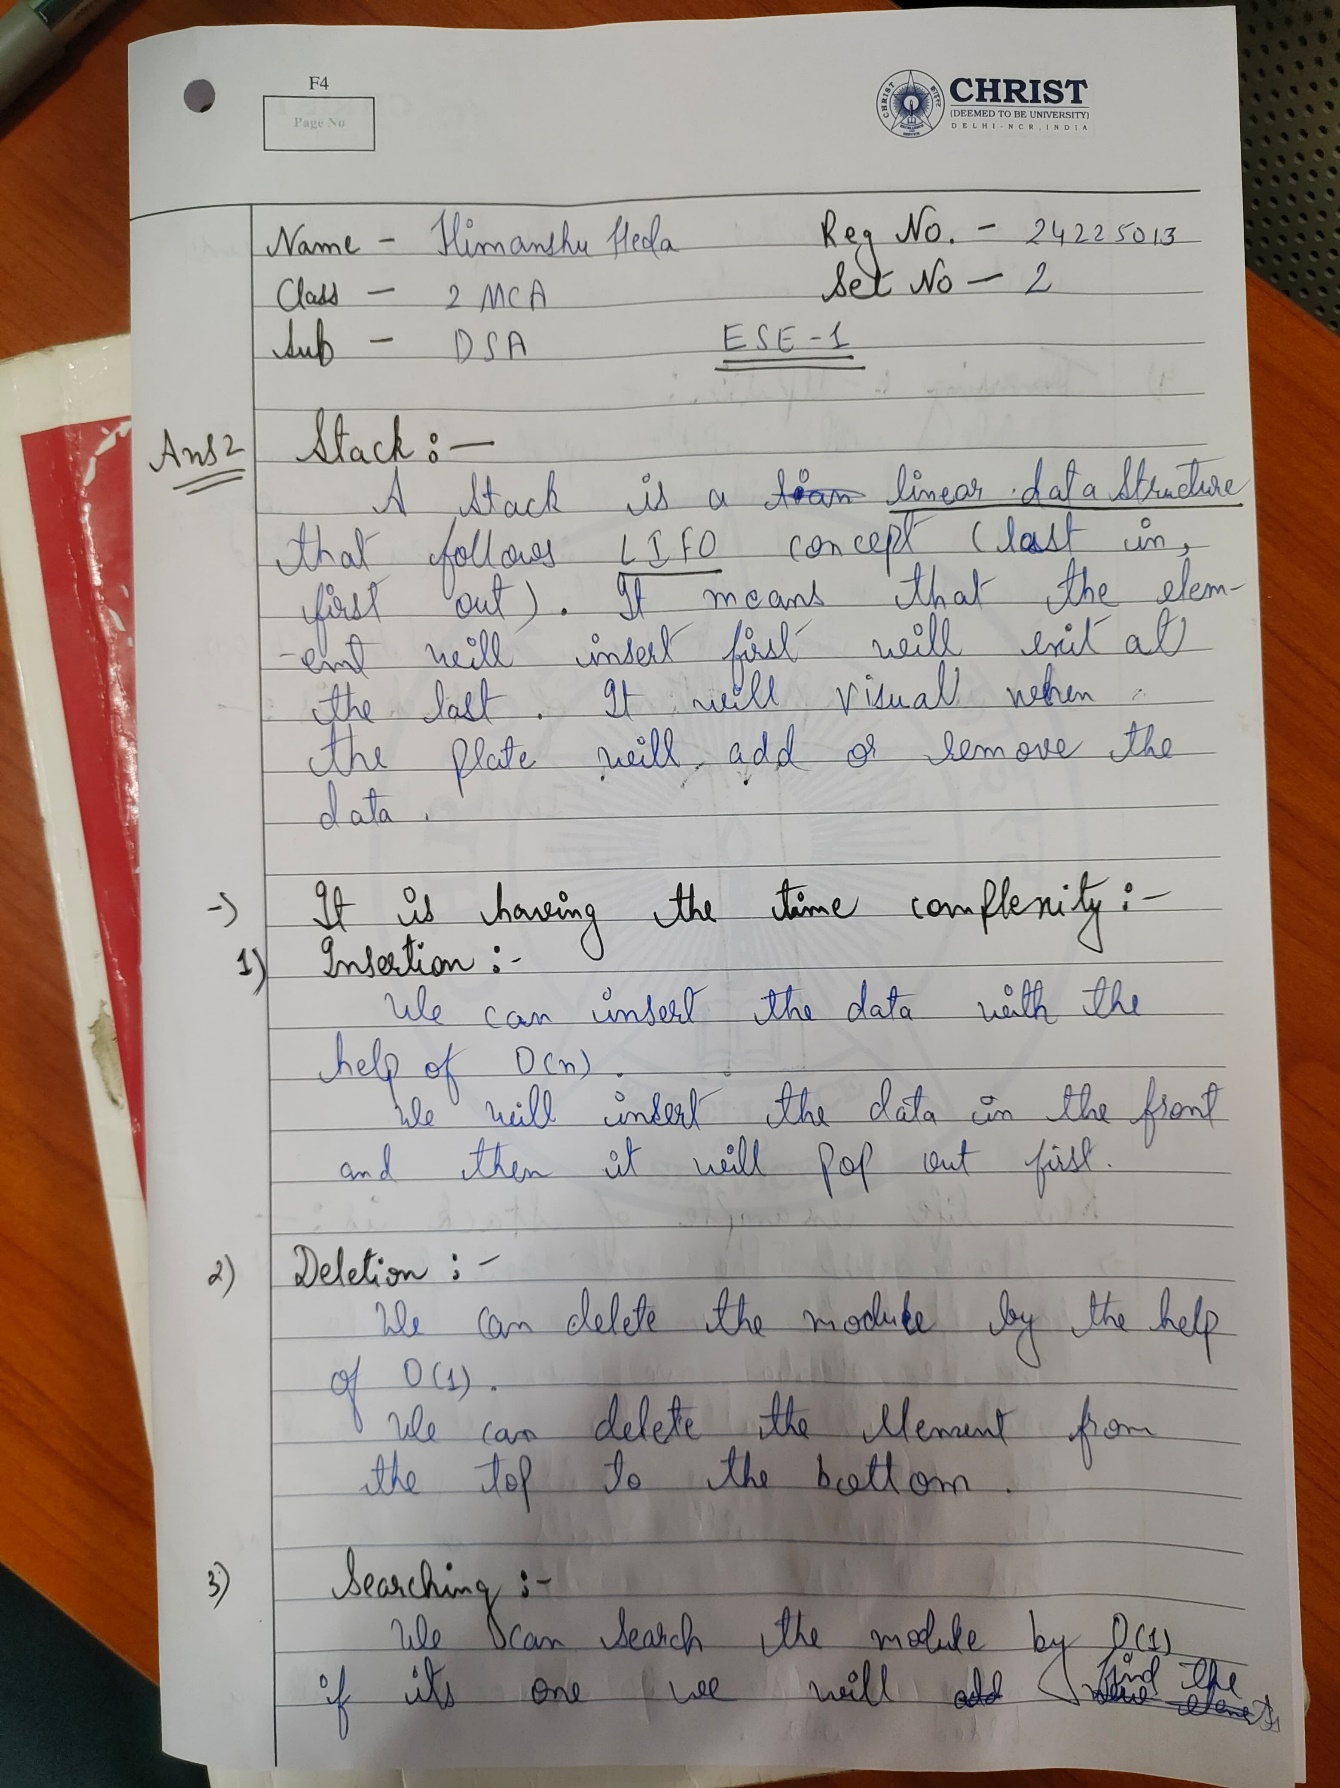 F4
Page No
CHRIST
(DEEMED TO BE UNIVERSITY)
DELHI-NCR, INDIA
Name - Himanshu Heda Reg No. - 24225013
Class - 2 MCA Set No - 2
Sub - DSA ESE-1
Ans 2 Stack :-
A Stack is a linear data Structure
that follows LIFO concept (last in,
first out). It means that the elem-
-ent will insert first will exit at
the last. It will visual when
the plate will add or remove the
data.
-> It is having the time complexity :-
1) Insertion :-
We can insert the data with the
help of O(n).
We will insert the data in the front
and then it will pop out first.
2) Deletion :-
We can delete the module by the help
of O(1).
We can delete the element from
the top to the bottom.
3) Searching :-
We can search the module by O(1)
if its one we will find the